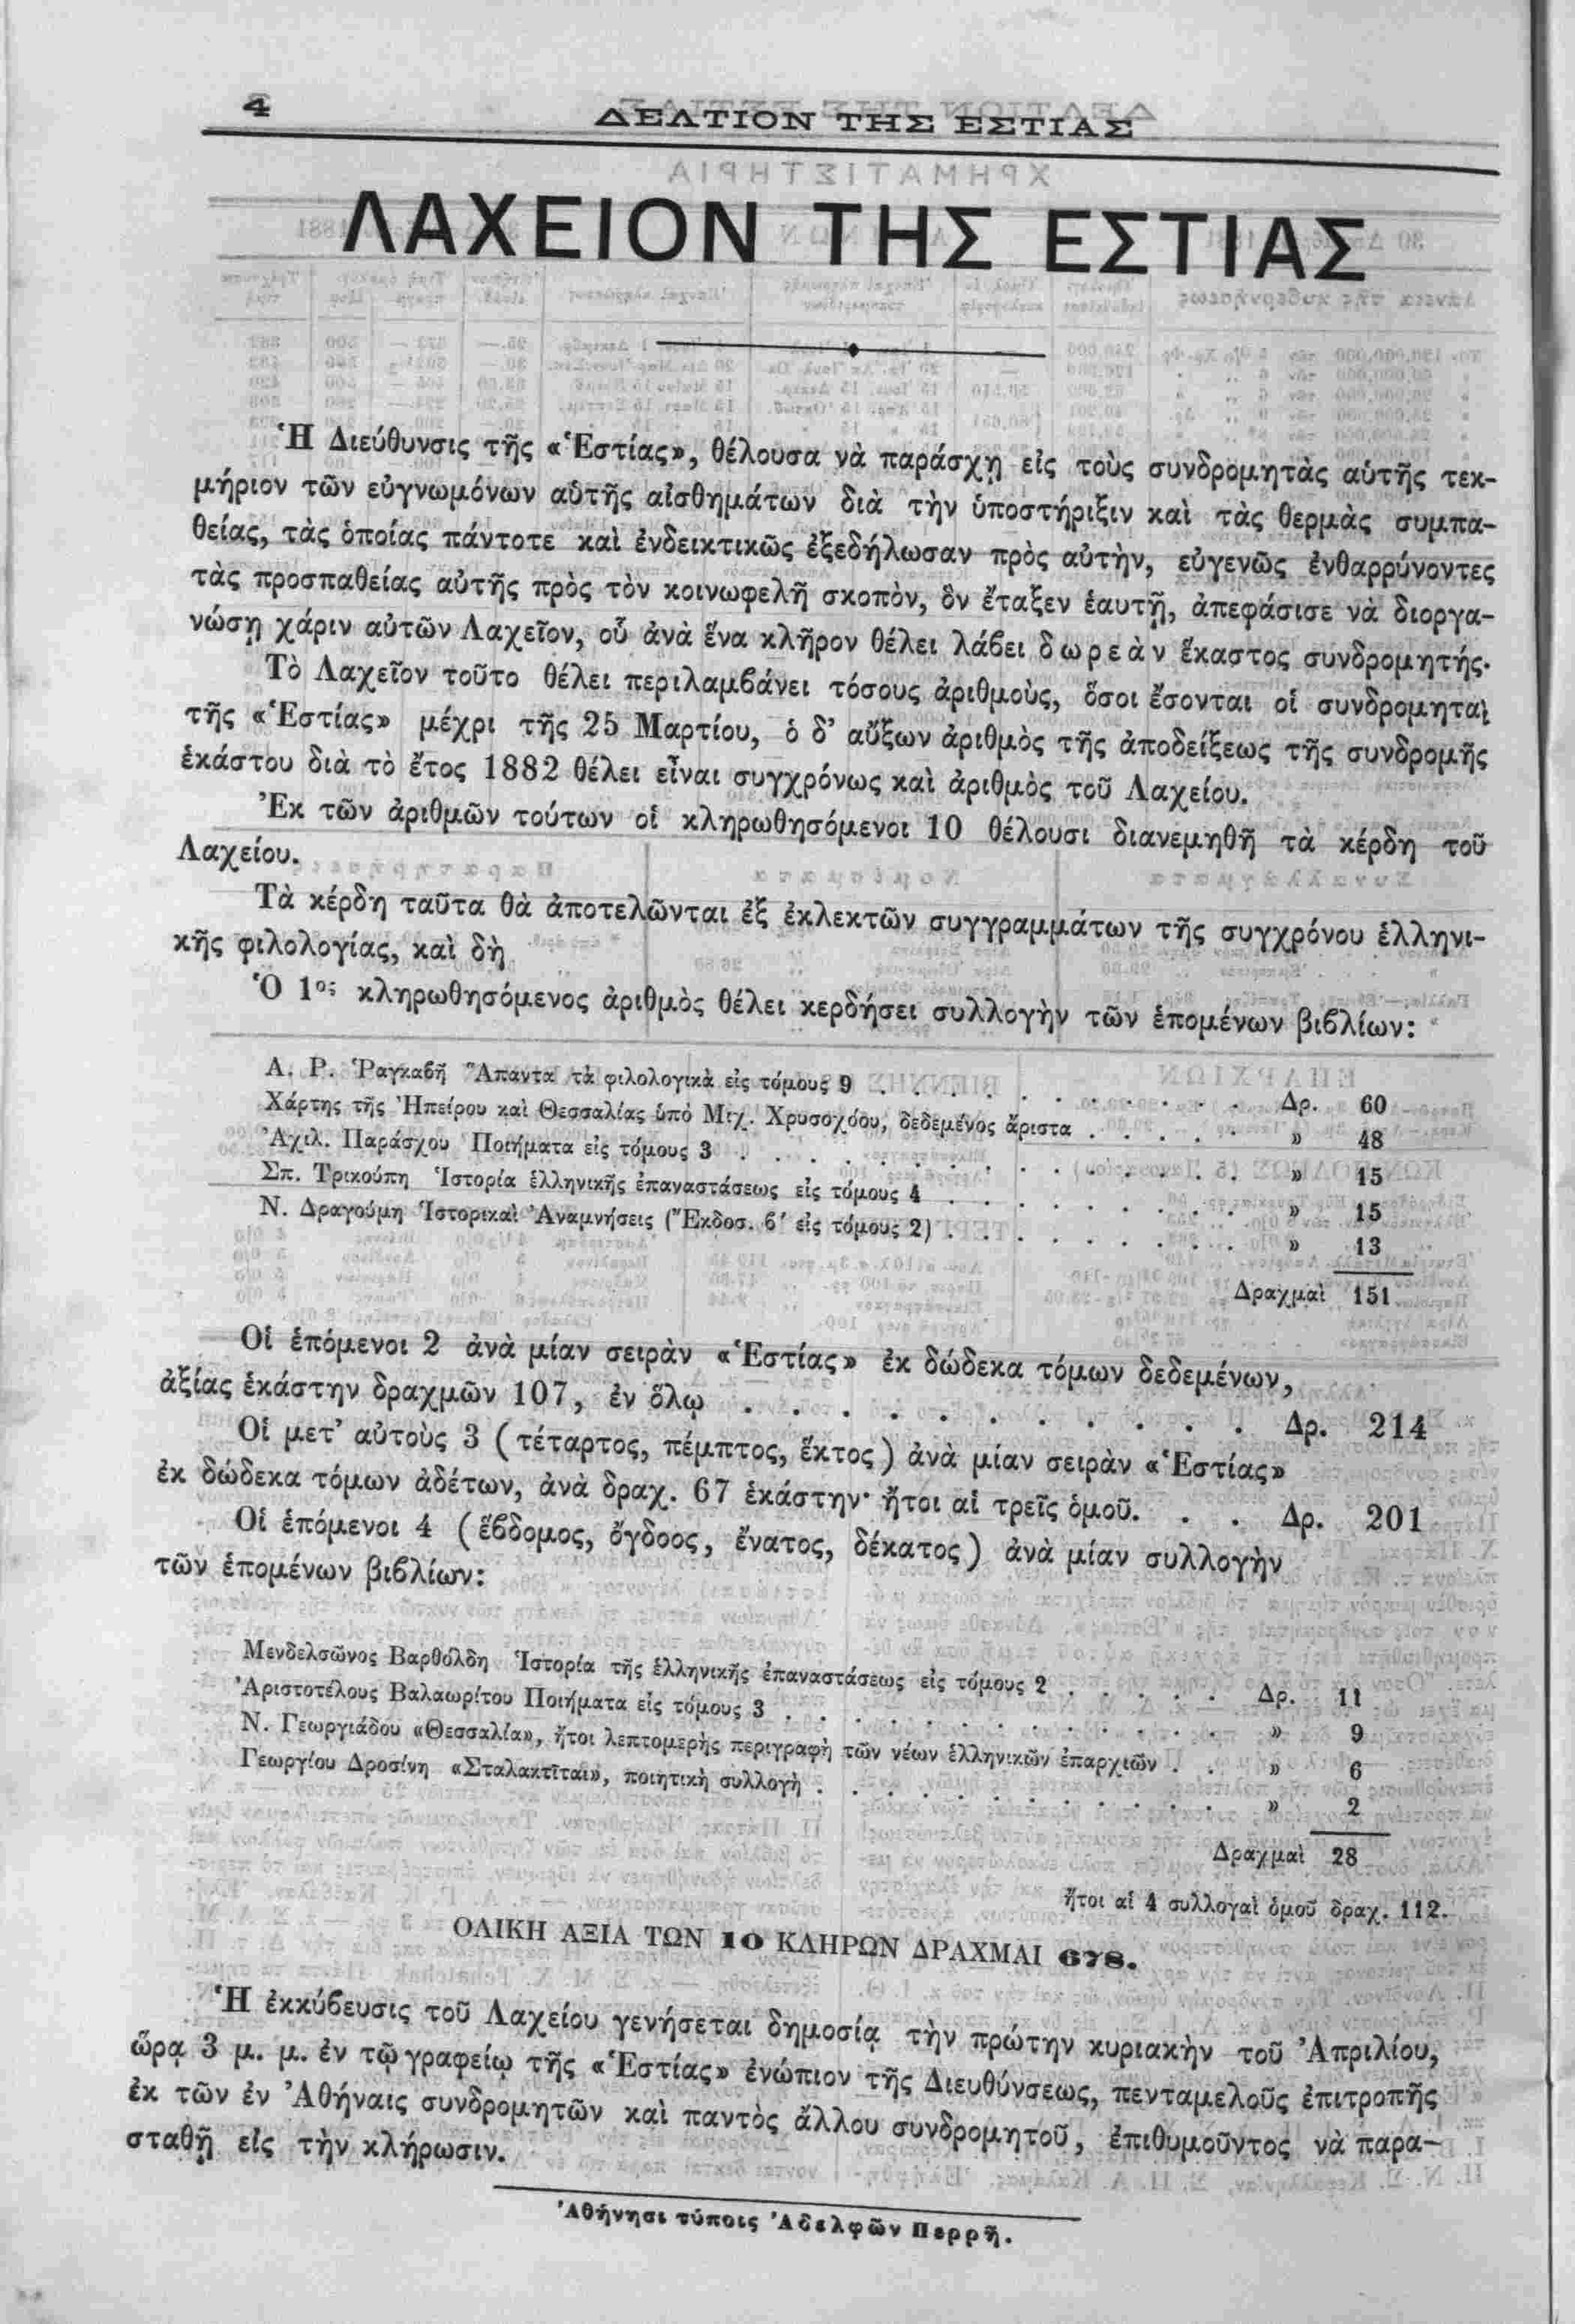 4
ΔΕΛΤΙΟΝ ΤΗΣ ΕΣΤΙΑΣ
ΛΑΧΕΙΟΝ ΤΗΣ ΕΣΤΙΑΣ
Ἡ Διεύθυνσις τῆς «Ἑστίας», θέλουσα νὰ παράσχῃ εἰς τοὺς συνδρομητὰς αὑτῆς τεκ-
μήριον τῶν εὐγνωμόνων αὑτῆς αἰσθημάτων διὰ τὴν ὑποστήριξιν καὶ τὰς θερμὰς συμπα-
θείας, τὰς ὁποίας πάντοτε καὶ ἐνδεικτικῶς ἐξεδήλωσαν πρὸς αὐτὴν, εὐγενῶς ἐνθαρρύνοντες
τὰς προσπαθείας αὐτῆς πρὸς τὸν κοινωφελῆ σκοπὸν, ὃν ἔταξεν ἑαυτῇ, ἀπεφάσισε νὰ διοργα-
νώσῃ χάριν αὐτῶν Λαχεῖον, οὗ ἀνὰ ἕνα κλῆρον θέλει λάβει δωρεὰν ἕκαστος συνδρομητής.
Τὸ Λαχεῖον τοῦτο θέλει περιλαμβάνει τόσους ἀριθμοὺς, ὅσοι ἔσονται οἱ συνδρομηταὶ
τῆς «Ἑστίας» μέχρι τῆς 25 Μαρτίου, ὁ δ' αὔξων ἀριθμὸς τῆς ἀποδείξεως τῆς συνδρομῆς
ἑκάστου διὰ τὸ ἔτος 1882 θέλει εἶναι συγχρόνως καὶ ἀριθμὸς τοῦ Λαχείου.
Ἐκ τῶν ἀριθμῶν τούτων οἱ κληρωθησόμενοι 10 θέλουσι διανεμηθῆ τὰ κέρδη τοῦ
Λαχείου.
Τὰ κέρδη ταῦτα θὰ ἀποτελῶνται ἐξ ἐκλεκτῶν συγγραμμάτων τῆς συγχρόνου ἑλληνι-
κῆς φιλολογίας, καὶ δὴ
Ὁ 1ος κληρωθησόμενος ἀριθμὸς θέλει κερδήσει συλλογὴν τῶν ἑπομένων βιβλίων:
Α. Ρ. Ῥαγκαβῆ Ἅπαντα τὰ φιλολογικὰ εἰς τόμους 9 . . . . . . . . . . Δρ. 60
Χάρτης τῆς Ἠπείρου καὶ Θεσσαλίας ὑπὸ Μιχ. Χρυσοχόου, δεδεμένος ἄριστα . . . . . » 48
Ἀχιλ. Παράσχου Ποιήματα εἰς τόμους 3 . . . . . . . . . . . . . » 15
Σπ. Τρικούπη Ἱστορία ἑλληνικῆς ἐπαναστάσεως εἰς τόμους 4 . . . . . . . . . » 15
Ν. Δραγούμη Ἱστορικαὶ Ἀναμνήσεις (Ἔκδοσ. β' εἰς τόμους 2) . . . . . . . . . » 13
Δραχμαὶ 151
Οἱ ἑπόμενοι 2 ἀνὰ μίαν σειρὰν «Ἑστίας» ἐκ δώδεκα τόμων δεδεμένων,
ἀξίας ἑκάστην δραχμῶν 107, ἐν ὅλῳ . . . . . . . . . . . Δρ. 214
Οἱ μετ' αὐτοὺς 3 (τέταρτος, πέμπτος, ἕκτος) ἀνὰ μίαν σειρὰν «Ἑστίας»
ἐκ δώδεκα τόμων ἀδέτων, ἀνὰ δραχ. 67 ἑκάστην· ἤτοι αἱ τρεῖς ὁμοῦ. . . Δρ. 201
Οἱ ἑπόμενοι 4 (ἕβδομος, ὄγδοος, ἔνατος, δέκατος) ἀνὰ μίαν συλλογὴν
τῶν ἑπομένων βιβλίων:
Μενδελσῶνος Βαρθόλδη Ἱστορία τῆς ἑλληνικῆς ἐπαναστάσεως εἰς τόμους 2 . . . . . Δρ. 11
Ἀριστοτέλους Βαλαωρίτου Ποιήματα εἰς τόμους 3 . . . . . . . . . . . . » 9
Ν. Γεωργιάδου «Θεσσαλία», ἤτοι λεπτομερὴς περιγραφὴ τῶν νέων ἑλληνικῶν ἐπαρχιῶν . . » 6
Γεωργίου Δροσίνη «Σταλακτῖται», ποιητικὴ συλλογὴ . . . . . . . . . . . . » 2
Δραχμαὶ 28
ἤτοι αἱ 4 συλλογαὶ ὁμοῦ δραχ. 112.
ΟΛΙΚΗ ΑΞΙΑ ΤΩΝ 10 ΚΛΗΡΩΝ ΔΡΑΧΜΑΙ 678.
Ἡ ἐκκύβευσις τοῦ Λαχείου γενήσεται δημοσίᾳ τὴν πρώτην κυριακὴν τοῦ Ἀπριλίου,
ὥρᾳ 3 μ. μ. ἐν τῷ γραφείῳ τῆς «Ἑστίας» ἐνώπιον τῆς Διευθύνσεως, πενταμελοῦς ἐπιτροπῆς
ἐκ τῶν ἐν Ἀθήναις συνδρομητῶν καὶ παντὸς ἄλλου συνδρομητοῦ, ἐπιθυμοῦντος νὰ παρα-
σταθῇ εἰς τὴν κλήρωσιν.
Ἀθήνησι τύποις Ἀδελφῶν Περρῆ.